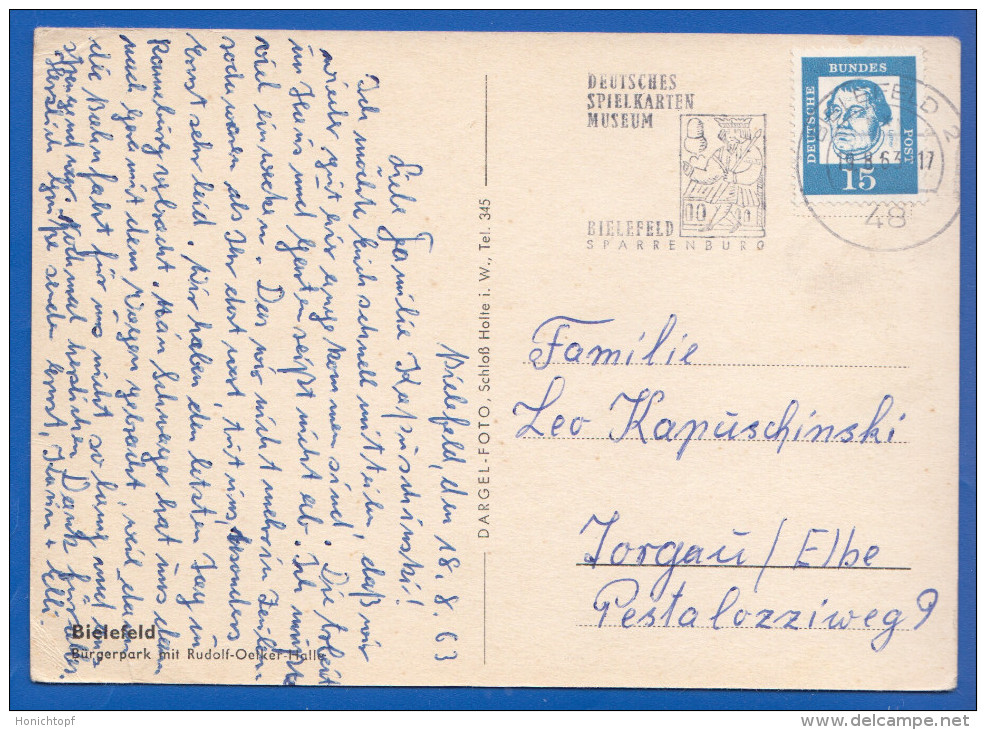 Bielefeld, den 18. 8. 63
Liebe Familie Kapuschinski!
Ich möchte Euch schnell mitteilen, daß wir
wieder gut hier angekommen sind. Die Arbeit
im Haus und Garten reißt nicht ab. Ich müßte
viel einwecken. Das wir nicht mehr in Zeilen
waren als Ihr dort wart tut uns besonders
Ernst sehr leid. Wir haben den letzten Tag in
verbracht. Mein Schwager hat uns dann
nach Gera mit dem Wagen gebracht, weil dann
die Bahnfahrt für uns nicht so lang und
war. Nochmal herzlichen Dank für alles.
Herzlich Grüße senden Ernst, + Elli.
Bielefeld
Bürgerpark mit Rudolf-Oetker-Halle
DARGEL-FOTO, Schloß Holte i. W., Tel. 345
DEUTSCHES
SPIELKARTEN
MUSEUM
BIELEFELD
SPARRENBURG
DEUTSCHE BUNDESPOST
15
BIELEFELD 2
48
Familie
Leo Kapuschinski
Torgau/Elbe
Pestalozziweg 9
Honichtopf
www.delcampe.net